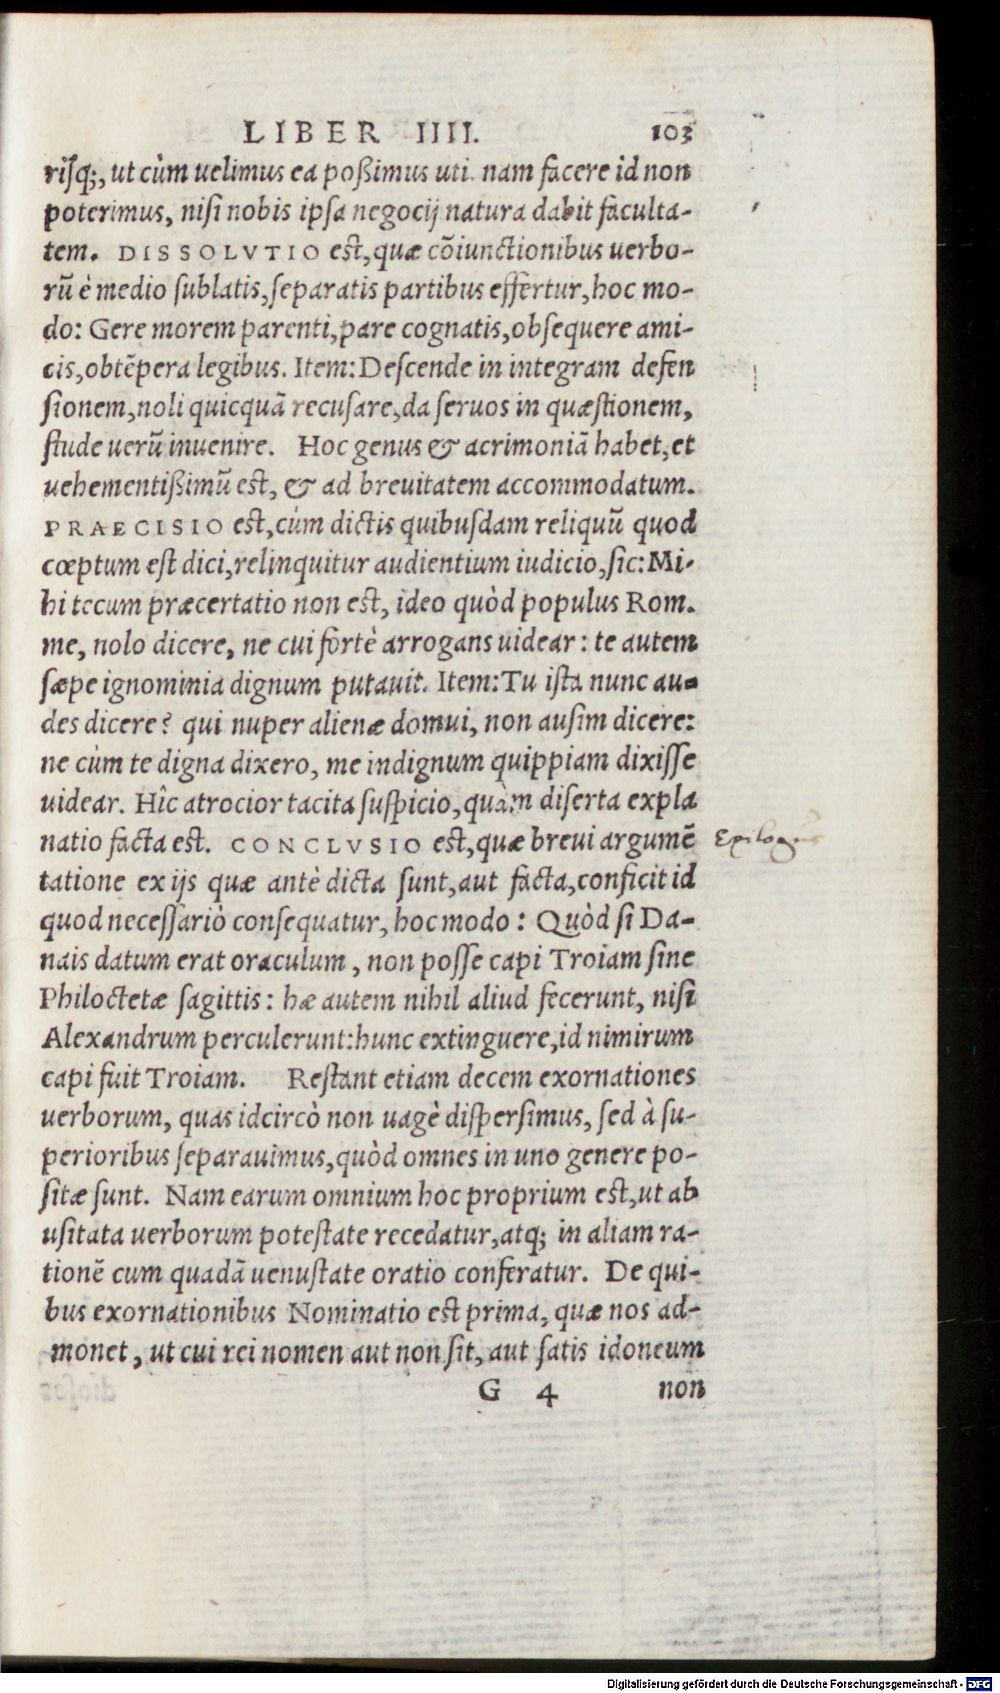 LIBER IIII. 103
risq;, ut cùm uelimus ea poßimus uti. nam facere id non
poterimus, nisi nobis ipsa negocij natura dabit faculta-
tem. DISSOLVTIO est, quæ cōiunctionibus uerbo-
rū è medio sublatis, separatis partibus effertur, hoc mo-
do: Gere morem parenti, pare cognatis, obsequere ami-
cis, obtēpera legibus. Item: Descende in integram defen
sionem, noli quicquā recusare, da seruos in quæstionem,
stude uerū inuenire. Hoc genus & acrimoniā habet, et
uehementißimū est, & ad breuitatem accommodatum.
PRAECISIO est, cùm dictis quibusdam reliquū quod
cœptum est dici, relinquitur audientium iudicio, sic: Mi-
hi tecum præcertatio non est, ideo quòd populus Rom.
me, nolo dicere, ne cui fortè arrogans uidear: te autem
sæpe ignominia dignum putauit. Item: Tu ista nunc au-
des dicere? qui nuper alienæ domui, non ausim dicere:
ne cùm te digna dixero, me indignum quippiam dixisse
uidear. Hîc atrocior tacita suspicio, quàm diserta expla
natio facta est. CONCLVSIO est, quæ breui argumē
Epilogus
tatione ex ijs quæ antè dicta sunt, aut facta, conficit id
quod necessariò consequatur, hoc modo: Quòd si Da-
nais datum erat oraculum, non posse capi Troiam sine
Philoctetæ sagittis: hæ autem nihil aliud fecerunt, nisi
Alexandrum perculerunt: hunc extinguere, id nimirum
capi fuit Troiam. Restant etiam decem exornationes
uerborum, quas idcircò non uagè dispersimus, sed à su-
perioribus separauimus, quòd omnes in uno genere po-
sitæ sunt. Nam earum omnium hoc proprium est, ut ab
usitata uerborum potestate recedatur, atq; in aliam ra-
tionē cum quadā uenustate oratio conferatur. De qui-
bus exornationibus Nominatio est prima, quæ nos ad-
monet, ut cui rei nomen aut non sit, aut satis idoneum
G 4 non
Digitalisierung gefördert durch die Deutsche Forschungsgemeinschaft - DFG